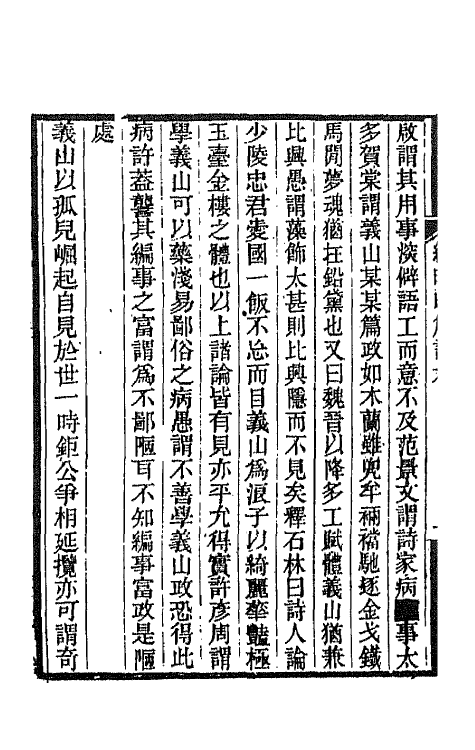 啟謂其用事深僻語工而意不及范景文謂詩家病事太
多賀裳謂義山某某篇政如木蘭雖兜牟裲襠馳逐金戈鐵
馬閒夢魂猶在鉛黛也又曰魏晉以降多工賦體義山猶兼
比興愚謂藻飾太甚則比興隱而不見矣釋石林曰詩人論
少陵忠君愛國一飯不忘而目義山為浪子以綺麗華豔極
玉臺金樓之體也以上諸論皆有見亦平允得實許彥周謂
學義山可以藥淺易鄙俗之病愚謂不善學義山政恐得此
病許葢襲其編事之富謂為不鄙陋耳不知編事富政是陋
處
義山以孤兒崛起自見於世一時鉅公爭相延攬亦可謂奇